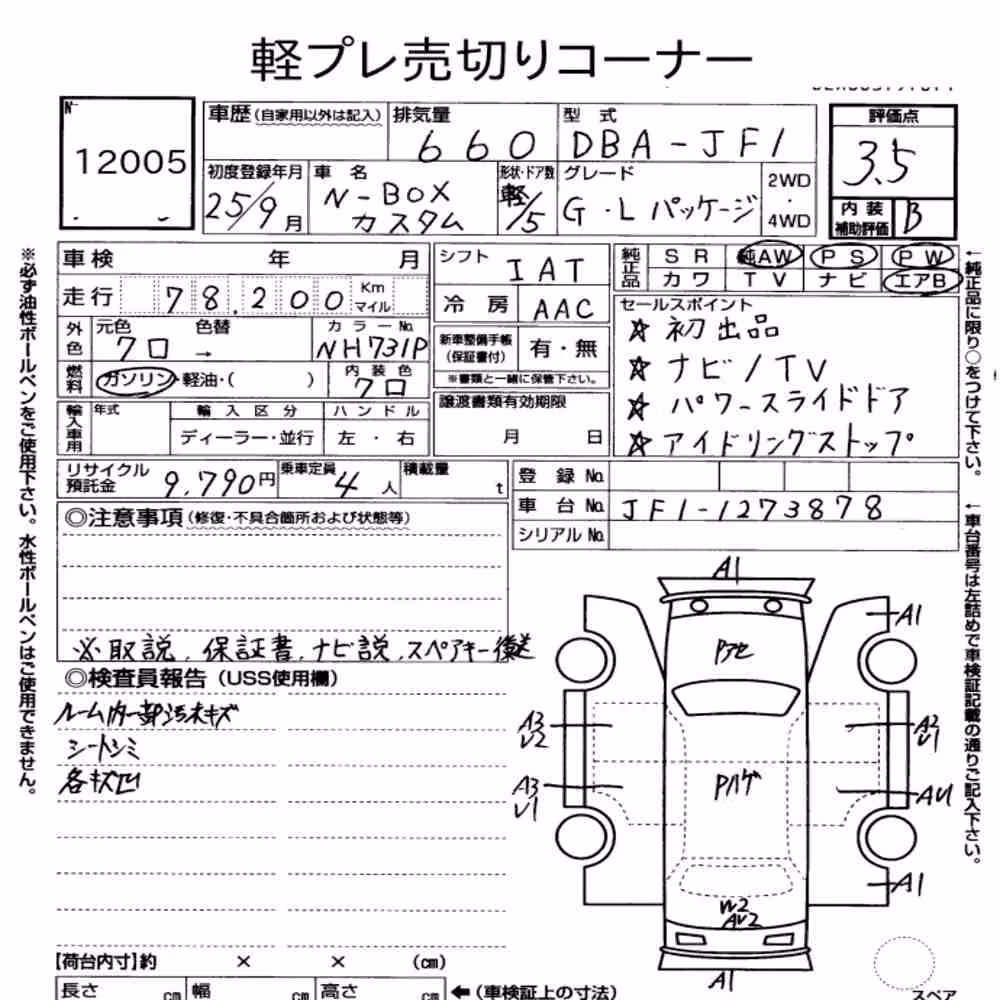 軽プレ売切りコーナー
№
12005
車歴(自家用以外は記入)
排気量
660
型 式
DBA-JF1
評価点
3.5
初度登録年月
25/9月
車 名
N-BOX
カスタム
形状・ドア数
軽/5
グレード
G・Lパッケージ
2WD
・
4WD
内 装
補助評価
B
車検 年 月
シフト
IAT
純正品
SR 純AW PS PW
カワ TV ナビ エアB
走行 78,200 Km
マイル
冷 房
AAC
セールスポイント
☆ 初出品
☆ ナビ/TV
☆ パワースライドドア
☆ アイドリングストップ
外色
元色 色替
クロ →
カラーNo.
NH731P
新車整備手帳
(保証書付)
有・無
※書類と一緒に保管下さい。
燃料
ガソリン・軽油・( )
内装色
クロ
譲渡書類有効期限
月 日
輸入車用
年式
輸入区分
ディーラー・並行
ハンドル
左・右
リサイクル
預託金
9,790円
乗車定員
4人
積載量
t
登録 No.
車台 No.
JF1-1273878
シリアル No.
◎注意事項(修復・不具合箇所および状態等)
※取説、保証書、ナビ説、スペアキー後送
◎検査員報告(USS使用欄)
ルーム内一部汚れキズ
シートシミ
各キズ凹
A1
A1
Pアセ
A3
U2
A2
U1
A3
U1
Pハゲ
AU1
A1
W2
AU2
A1
【荷台内寸】約 × × (cm)
長さ cm 幅 cm 高さ cm
←(車検証上の寸法)
スペア
※必ず油性ボールペンをご使用下さい。水性ボールペンはご使用できません。
←純正品に限り○をつけて下さい。
←車台番号は左詰めで車検証記載の通りご記入下さい。